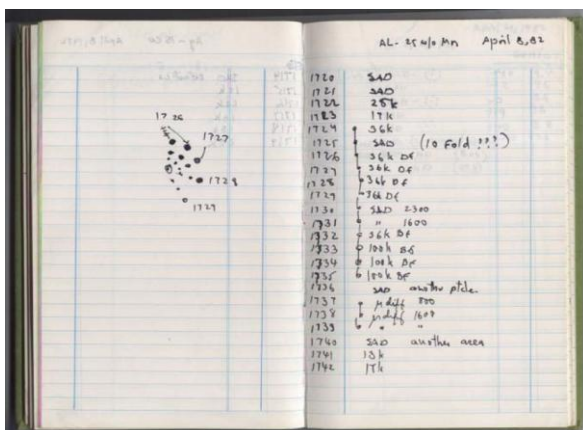 1726
1727
1728
1729
AL- 25 w/o Mn April 8, 82
1720 SAD
1721 SAD
1722 25k
1723 17k
1724 36k
1725 SAD (10 Fold ???)
1726 36k DF
1727 36k DF
1728 36k DF
1729 36k DF
1730 SAD 2300
1731 " 1600
1732 36k BF
1733 100k BF
1734 100k BF
1735 100k BF
1736 SAD another ptcle
1737 μ diff 800
1738 μ diff 1600
1739 " "
1740 SAD another area
1741 13k
1742 17k